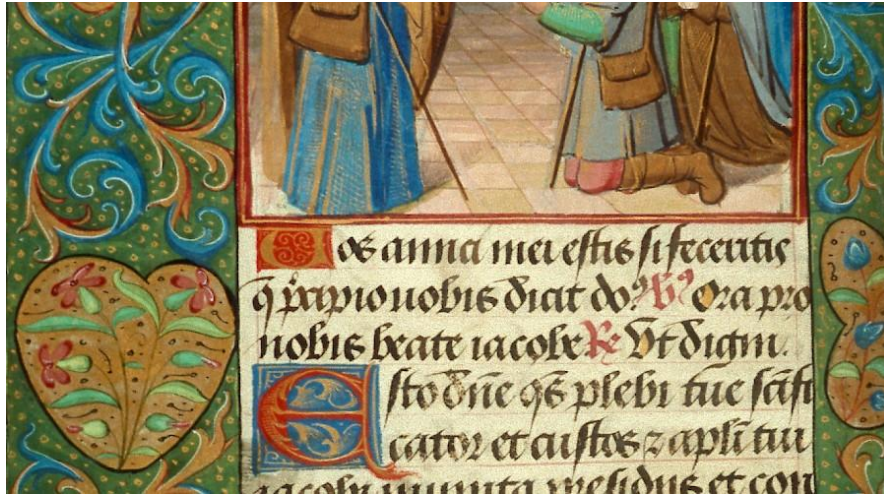 Vos amici mei estis si feceritis
q̄ p̄cipio uobis dicit do⁹ V⁹ Ora pro
nobis beate iacobe Re Vt digni.
Esto dn̄e q̄s plebi tue sc̄ifi
cator et custos ⁊ apl̄i tui
iacobi munita presidiis et con